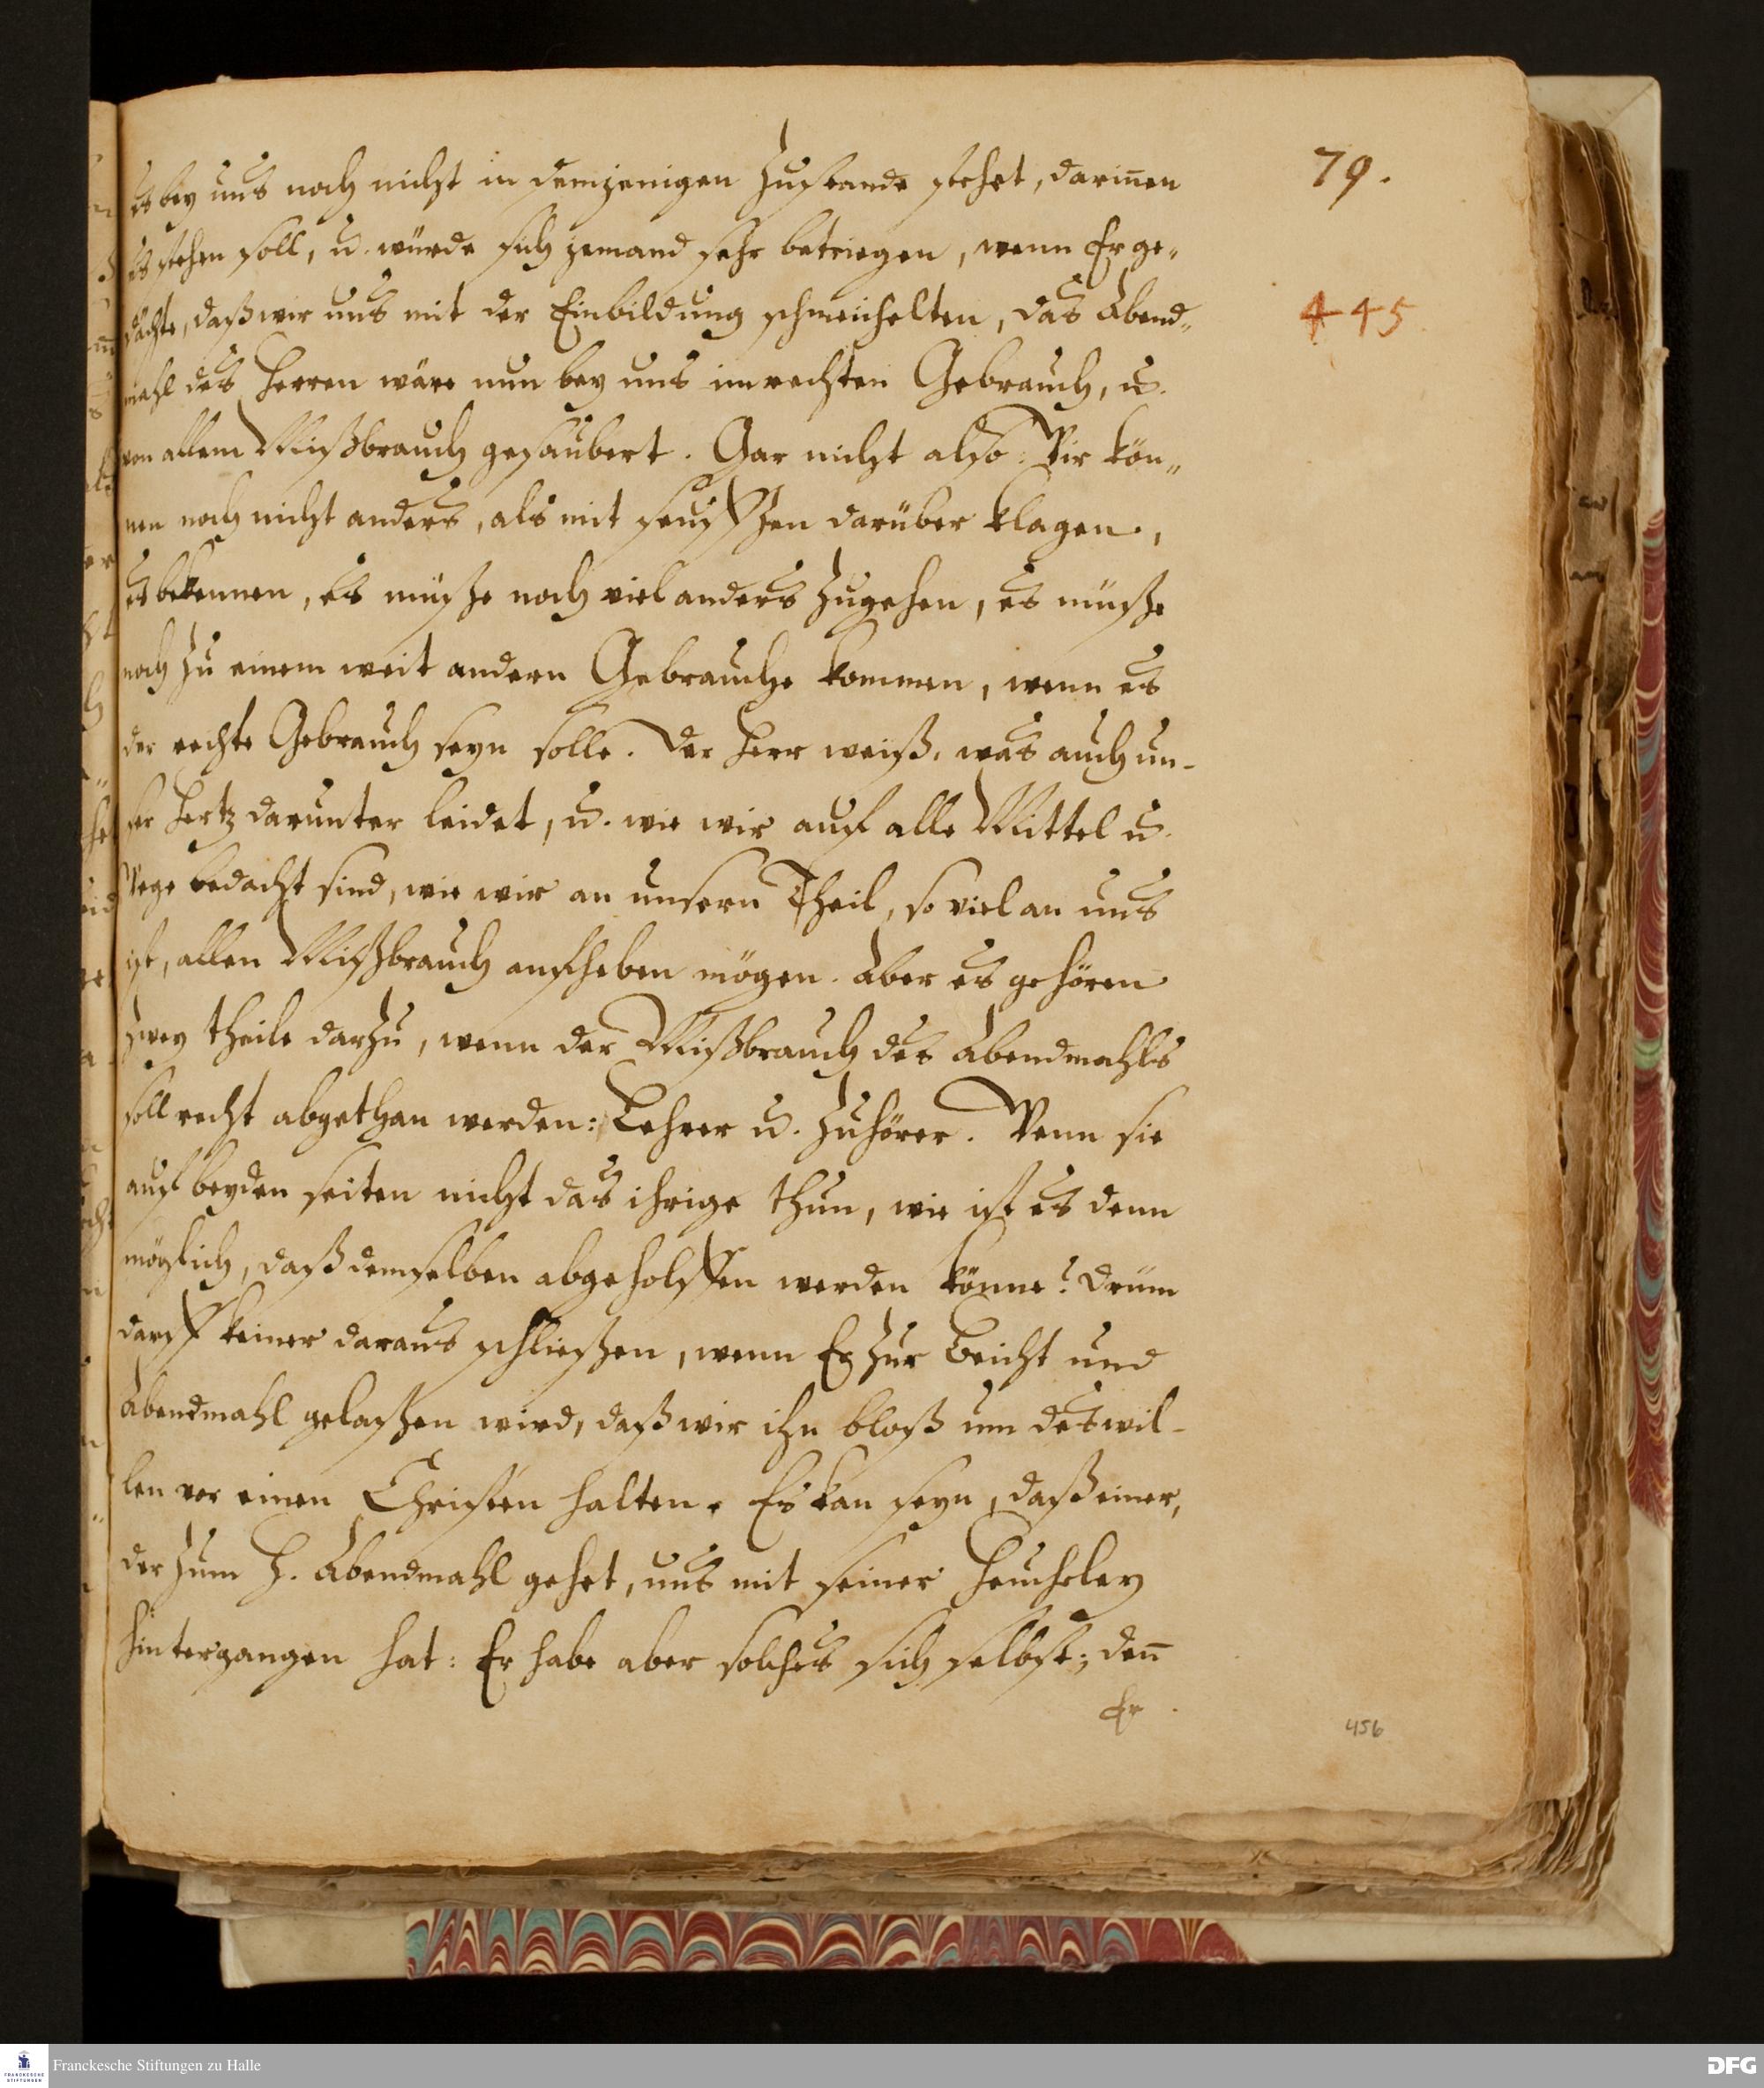 79.
445
es bey uns noch nicht in demjenigen Zustande stehet, darinen
es stehen soll, u. würde sich jemand sehr betriegen, wenn Er ge„
dächte, daß wir uns mit der Einbildung schmeichelten, das Abend„
mahl des Herren wäre nun bey uns im rechten Gebrauch, u.
von allem Mißbrauch gesäubert. Gar nicht also: Wir kön„
nen noch nicht anders, als mit seuffzen darüber klagen,
es bekennen, es müsse noch viel anders zugehen, es müsse
noch zu einem weit andern Gebrauche kommen, wenn es
der rechte Gebrauch seyn solle. Der Herr weiß, was auch un-
ser Hertz darunter leidet, u. wie wir auf alle Mittel u.
Wege bedacht sind, wie wir an unserm Theil, so viel an uns
ist, allen Mißbrauch aufheben mögen. Aber es gehören
zwey theile darzu, wenn der Mißbrauch des Abendmahls
soll recht abgethan werden: Lehrer u. Zuhörer. Wenn sie
auf beyden seiten nicht das ihrige thun, wie ist es denn
möglich, daß demselben abgeholffen werden könne? Drüm
darff keiner daraus schliessen, wenn Er zur Beicht und
Abendmahl gelassen wird, daß wir ihn bloß um deswil-
len vor einen Christen halten. Es kan seyn, daß einer,
der zum H. Abendmahl gehet, uns mit seiner Heucheley
hintergangen hat: Er habe aber solches sich selbst; den̄
Er
456
Franckesche Stiftungen zu Halle
DFG